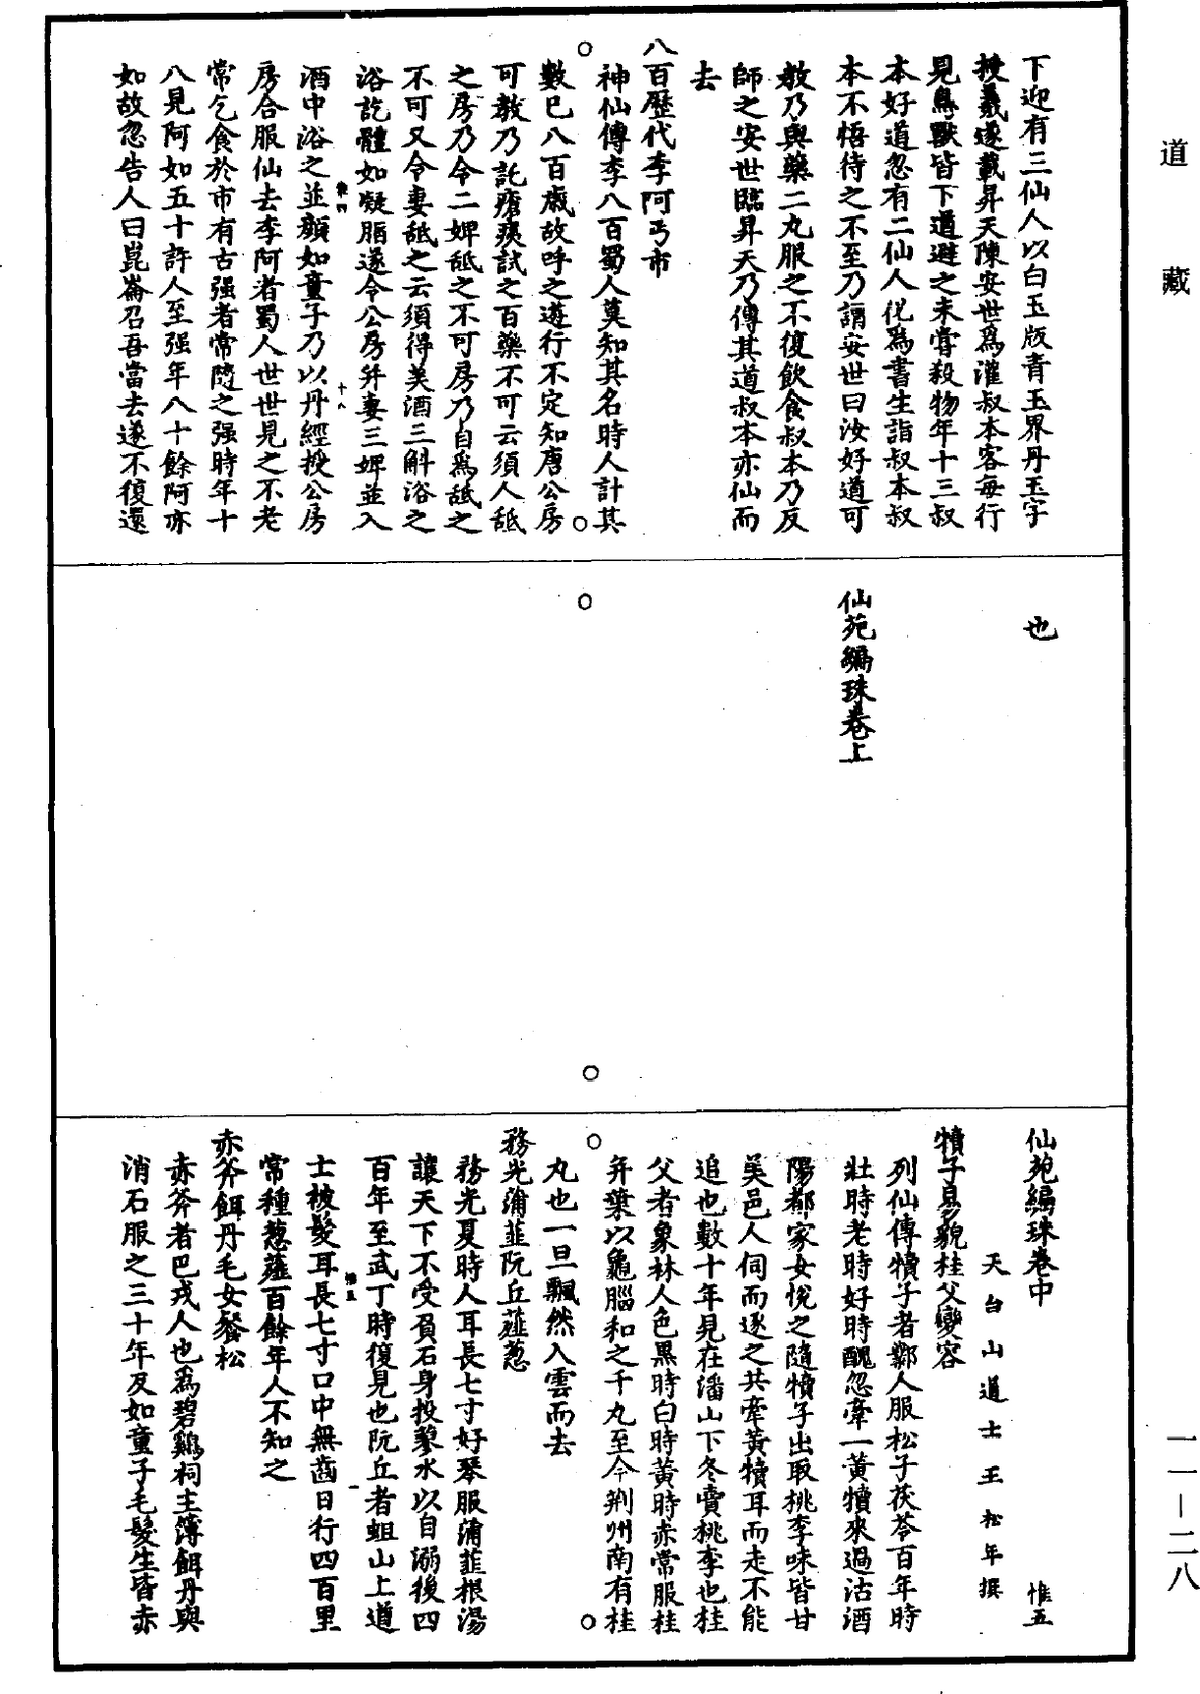 道藏
下迎有三仙人以白玉版青玉界丹玉字
授羲遂載昇天陳安世爲灌叔本客每行
見鳥獸皆下道避之未嘗殺物年十三叔
本好道忽有二仙人化爲書生詣叔本叔
本不悟待之不至乃謂安世曰汝好道可
教乃與藥二丸服之不復飲食叔本乃反
師之安世臨昇天乃傳其道叔本亦仙而
去
八百歷代李阿丐市
神仙傳李八百蜀人莫知其名時人計其
數已八百歲故呼之遊行不定知唐公房
可教乃託瘡痍試之百藥不可云須人舐
之房乃令二婢舐之不可房乃自爲舐之
不可又令妻舐之云須得美酒三斛浴之
浴訖體如凝脂遂令公房并妻三婢並入
酒中浴之並顏如童子乃以丹經授公房
房合服仙去李阿者蜀人世世見之不老
常乞食於市有古强者常隨之强時年十
八見阿如五十許人至强年八十餘阿亦
如故忽告人曰崑崙召吾當去遂不復還
也
仙苑編珠卷上
仙苑編珠卷中 惟五
天台山道士王松年撰
犢子易貌桂父變容
列仙傳犢子者鄴人服松子茯苓百年時
壯時老時好時醜忽牽一黃犢來過沽酒
陽都家女悅之隨犢子出取桃李味皆甘
美邑人伺而逐之共牽黃犢耳而走不能
追也數十年見在潘山下冬賣桃李也桂
父者象林人色黑時白時黃時赤常服桂
并葉以龜腦和之千丸至今荆州南有桂
丸也一旦飄然入雲而去
務光蒲韮阮丘薤葱
務光夏時人耳長七寸好琴服蒲韮根湯
讓天下不受負石身投蓼水以自溺後四
百年至武丁時復見也阮丘者蛆山上道
士被髮耳長七寸口中無齒日行四百里
常種葱薤百餘年人不知之
赤斧餌丹毛女餐松
赤斧者巴戎人也爲碧鷄祠主簿餌丹與
消石服之三十年反如童子毛髮生皆赤
一一—二八